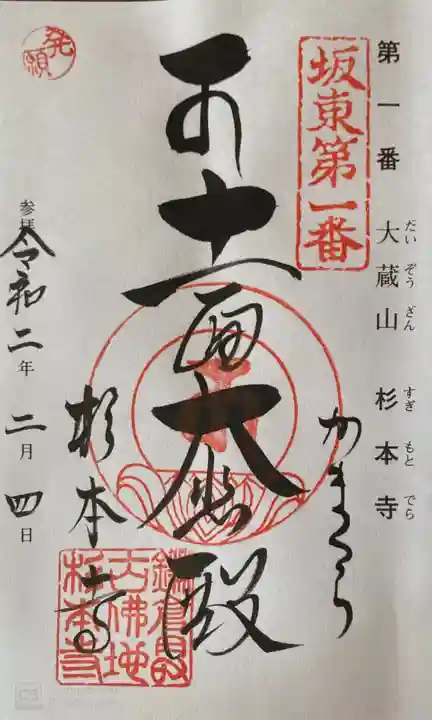 第一番 大蔵山 杉本寺
だいぞうざん すぎもとでら
坂東第一番
かまくら
十一面大悲殿
発願
杉本寺
鎌倉最
古佛地
杉本寺
参拝
令和二年二月四日